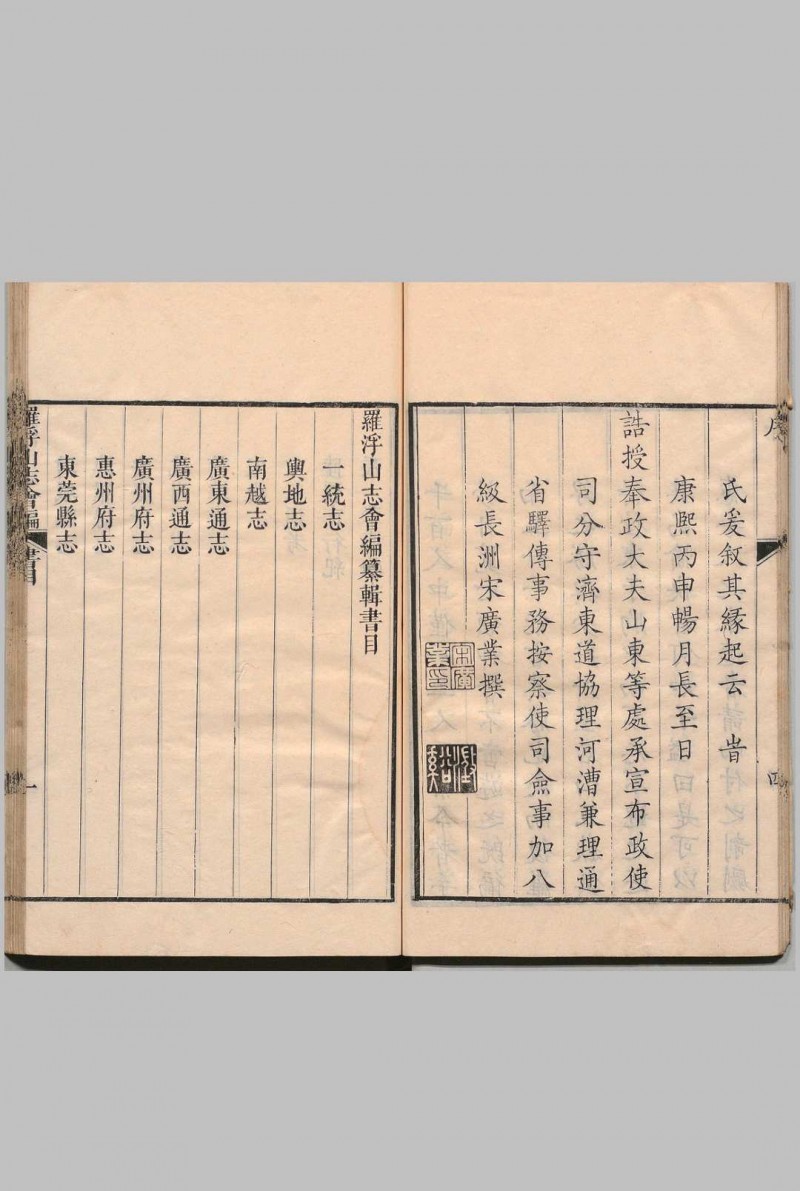 序
氏爰叙其緣起云旹
康熙丙申暢月長至日
誥授奉政大夫山東等處承宣布政使
司分守濟東道協理河漕兼理通
省驛傳事務按察使司僉事加八
級長洲宋廣業撰
宋廣業印
四
羅浮山志會編纂輯書目
一統志
輿地志
南越志
廣東通志
廣西通志
廣州府志
惠州府志
東莞縣志
羅浮山志會編
書目
一